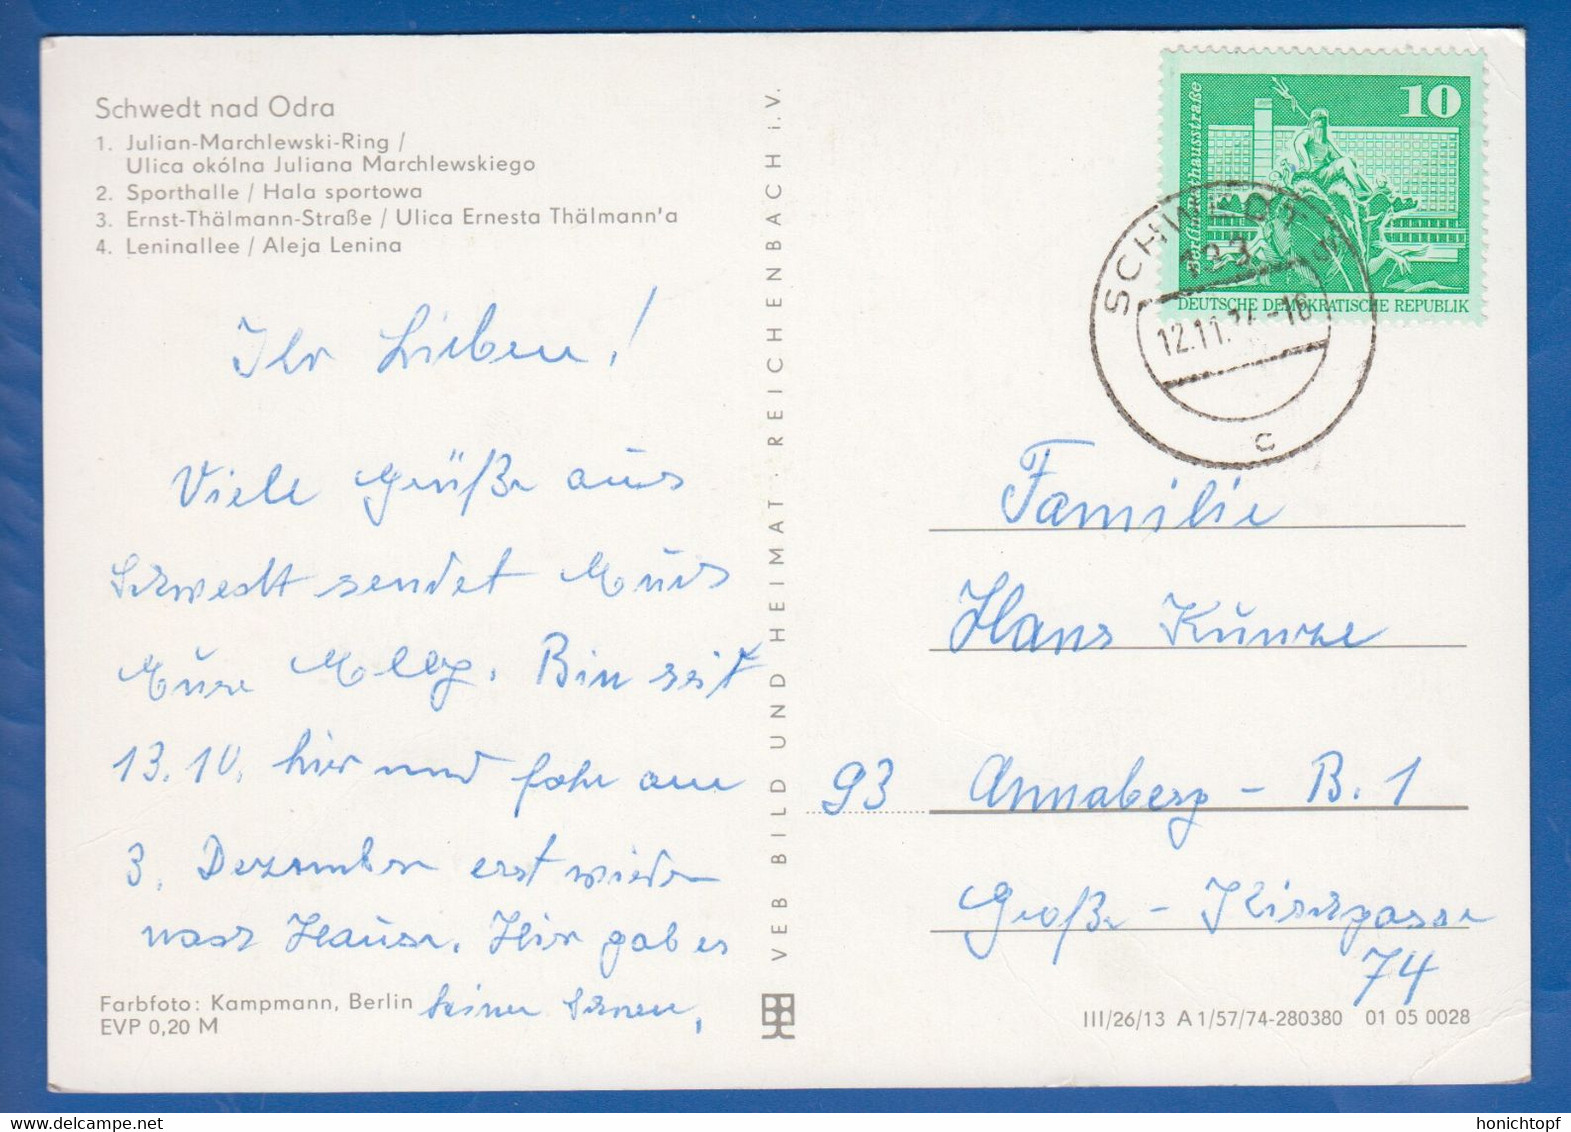 Schwedt nad Odra
1. Julian-Marchlewski-Ring /
Ulica okólna Juliana Marchlewskiego
2. Sporthalle / Hala sportowa
3. Ernst-Thälmann-Straße / Ulica Ernesta Thälmann'a
4. Leninallee / Aleja Lenina
Ihr Lieben!
Viele Grüße aus
Schwedt sendet Euch
Eure
Bin seit
13.10. hier und fahr am
3. Dezember erst wieder
nach Hause. Hier gab es
keinen Schnee,
Farbfoto: Kampmann, Berlin
EVP 0,20 M
VEB BILD UND HEIMAT · REICHENBACH i. V.
10
Berlin, Rathausstraße
DEUTSCHE DEMOKRATISCHE REPUBLIK
SCHWEDT
133
12.11.74-18
c
Familie
Hans Kunze
93 Annaberg - B. 1
Große - Kirchgasse
74
III/26/13 A 1/57/74-280380 01 05 0028
honichtopf